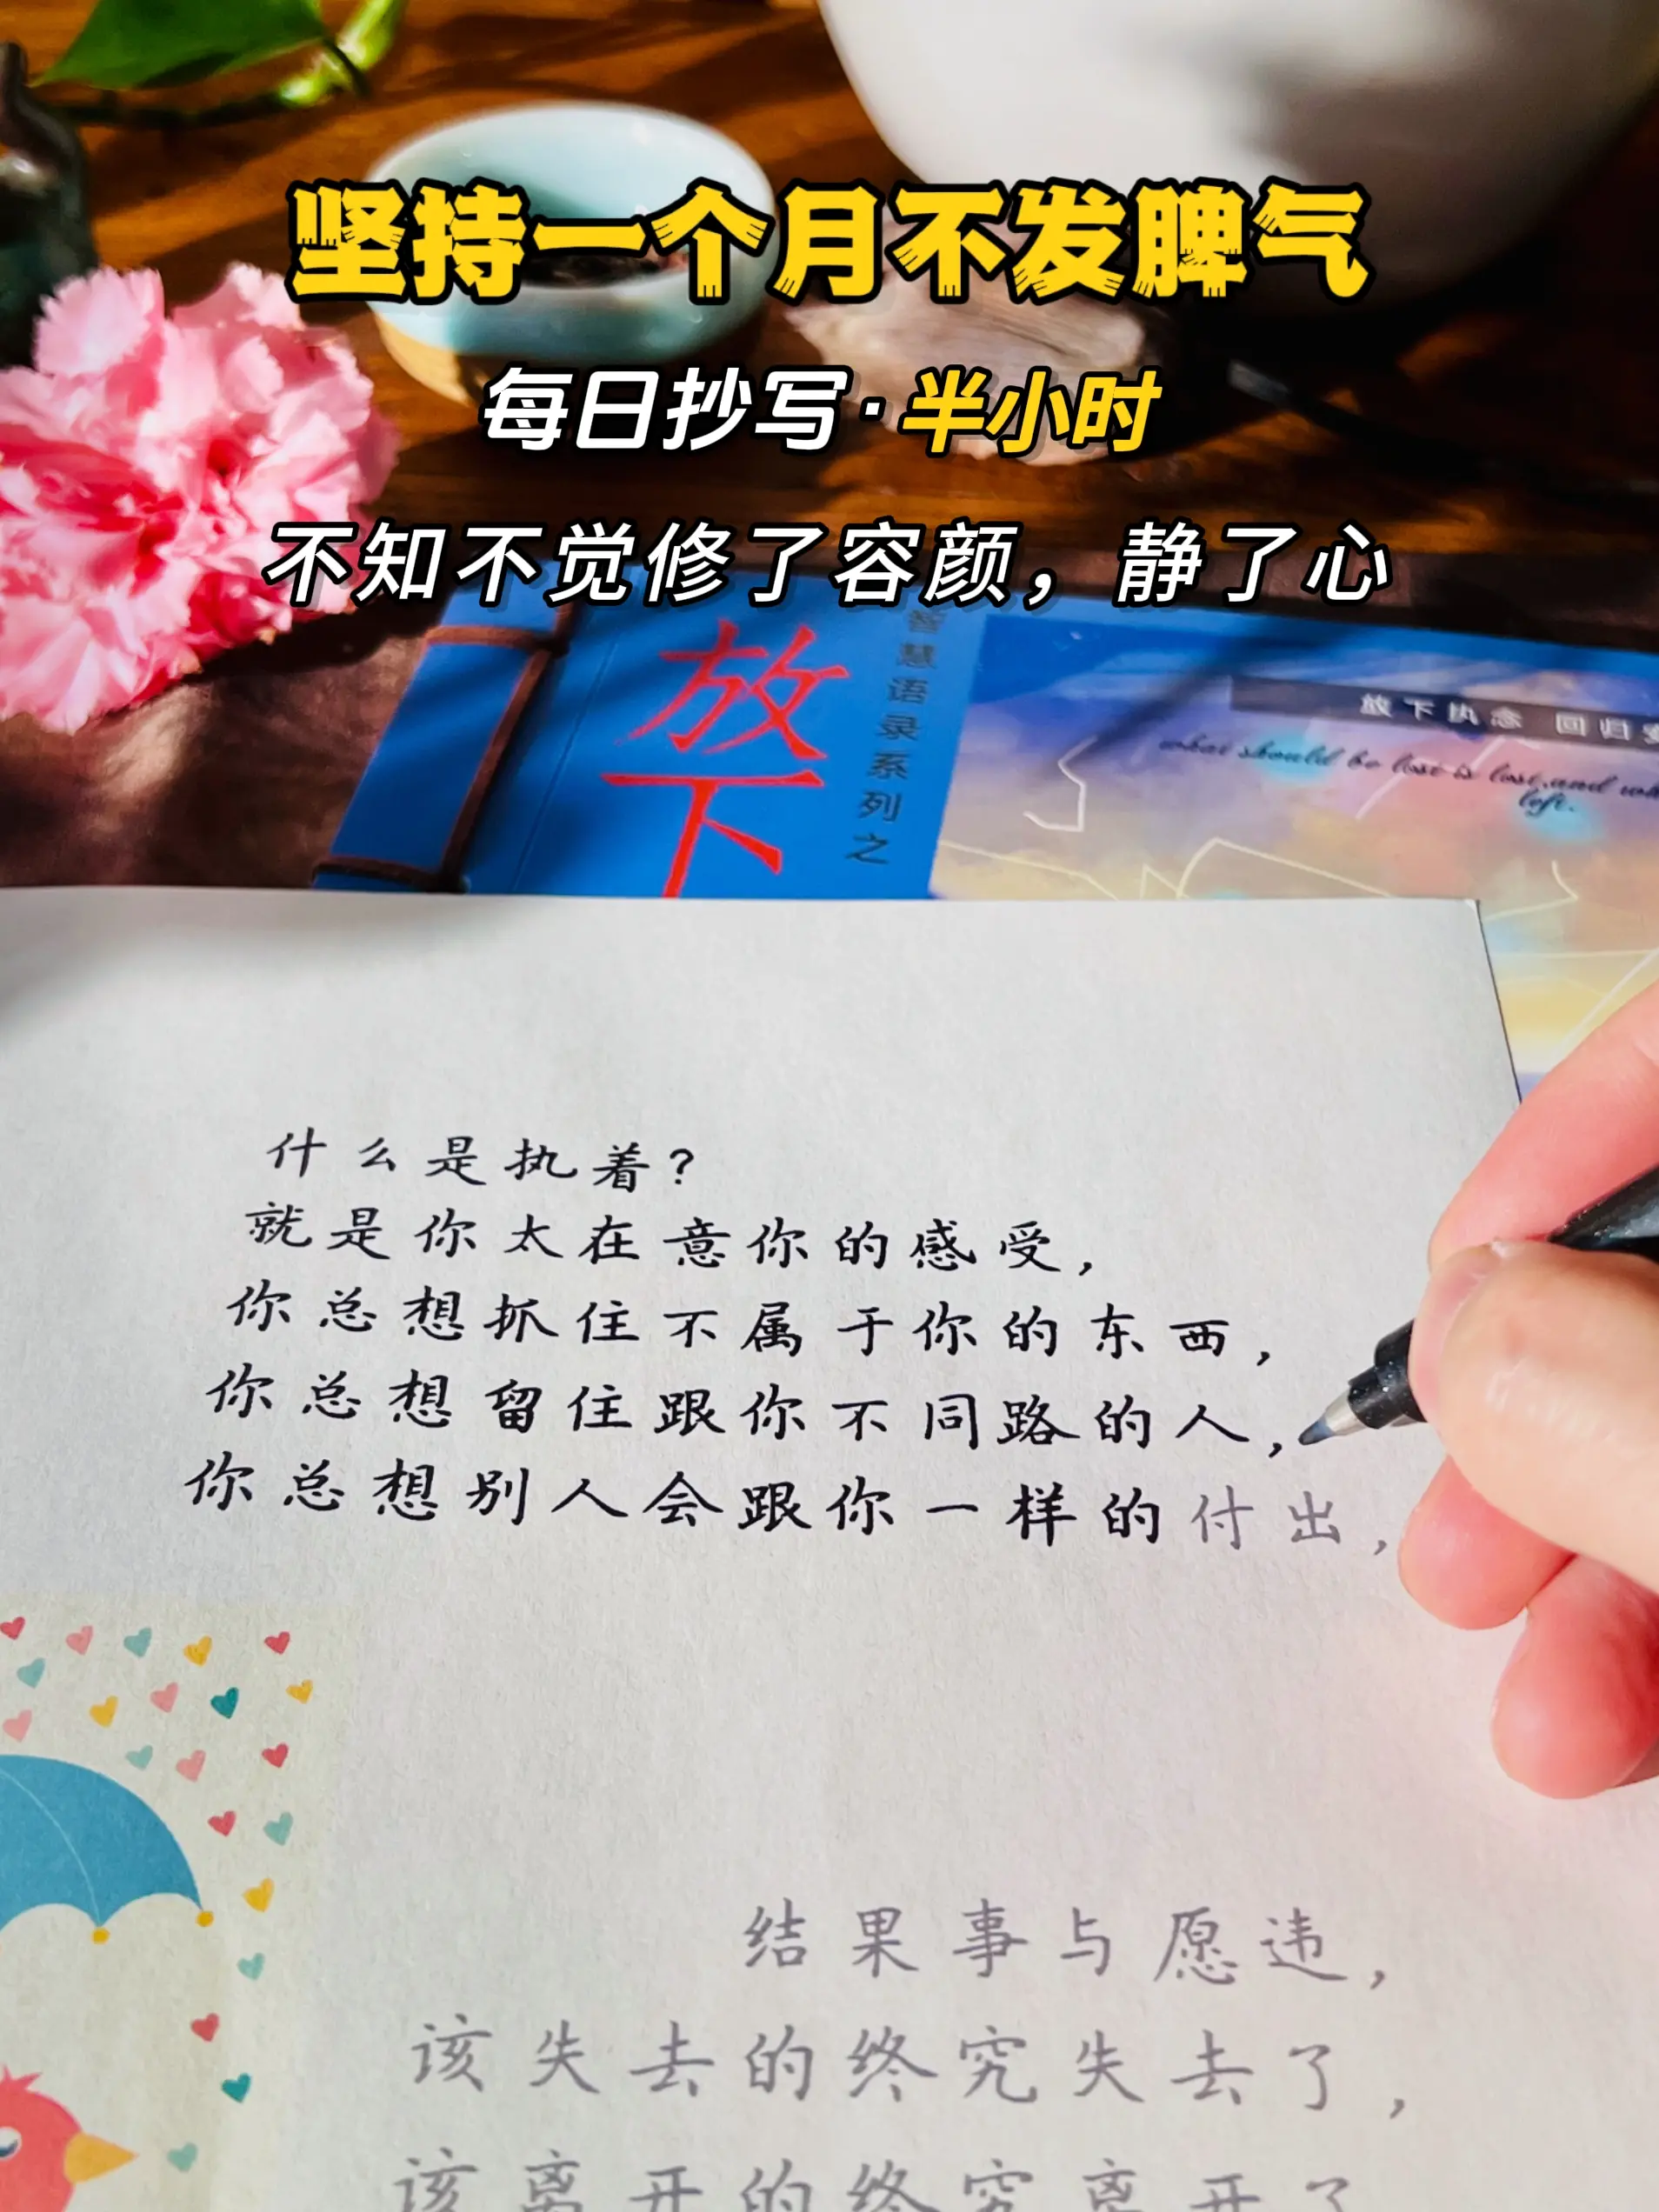 坚持一个月不发脾气
每日抄写·半小时
不知不觉修了容颜，静了心
放下
智慧语录系列之
放下执念 回归
what should be lost is lost, and
left.
什么是执着？
就是你太在意你的感受，
你总想抓住不属于你的东西，
你总想留住跟你不同路的人，
你总想别人会跟你一样的付出，
结果事与愿违，
该失去的终究失去了，
该离开的终究离开了